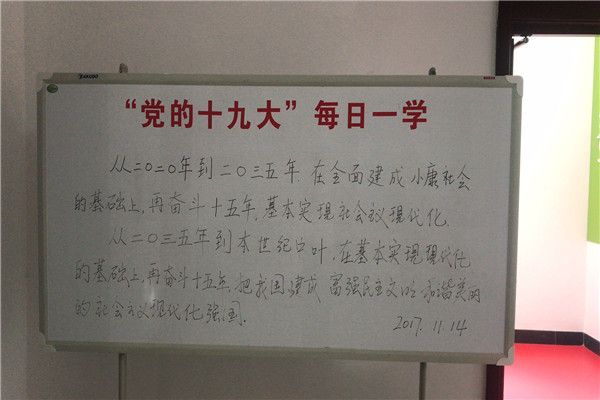 “党的十九大”每日一学
从二〇二〇年到二〇三五年,在全面建成小康社会
的基础上,再奋斗十五年,基本实现社会主义现代化.
从二〇三五年到本世纪中叶,在基本实现现代化
的基础上,再奋斗十五年,把我国建成 富强民主文明 和谐美丽
的社会主义现代化强国.
2017.11.14